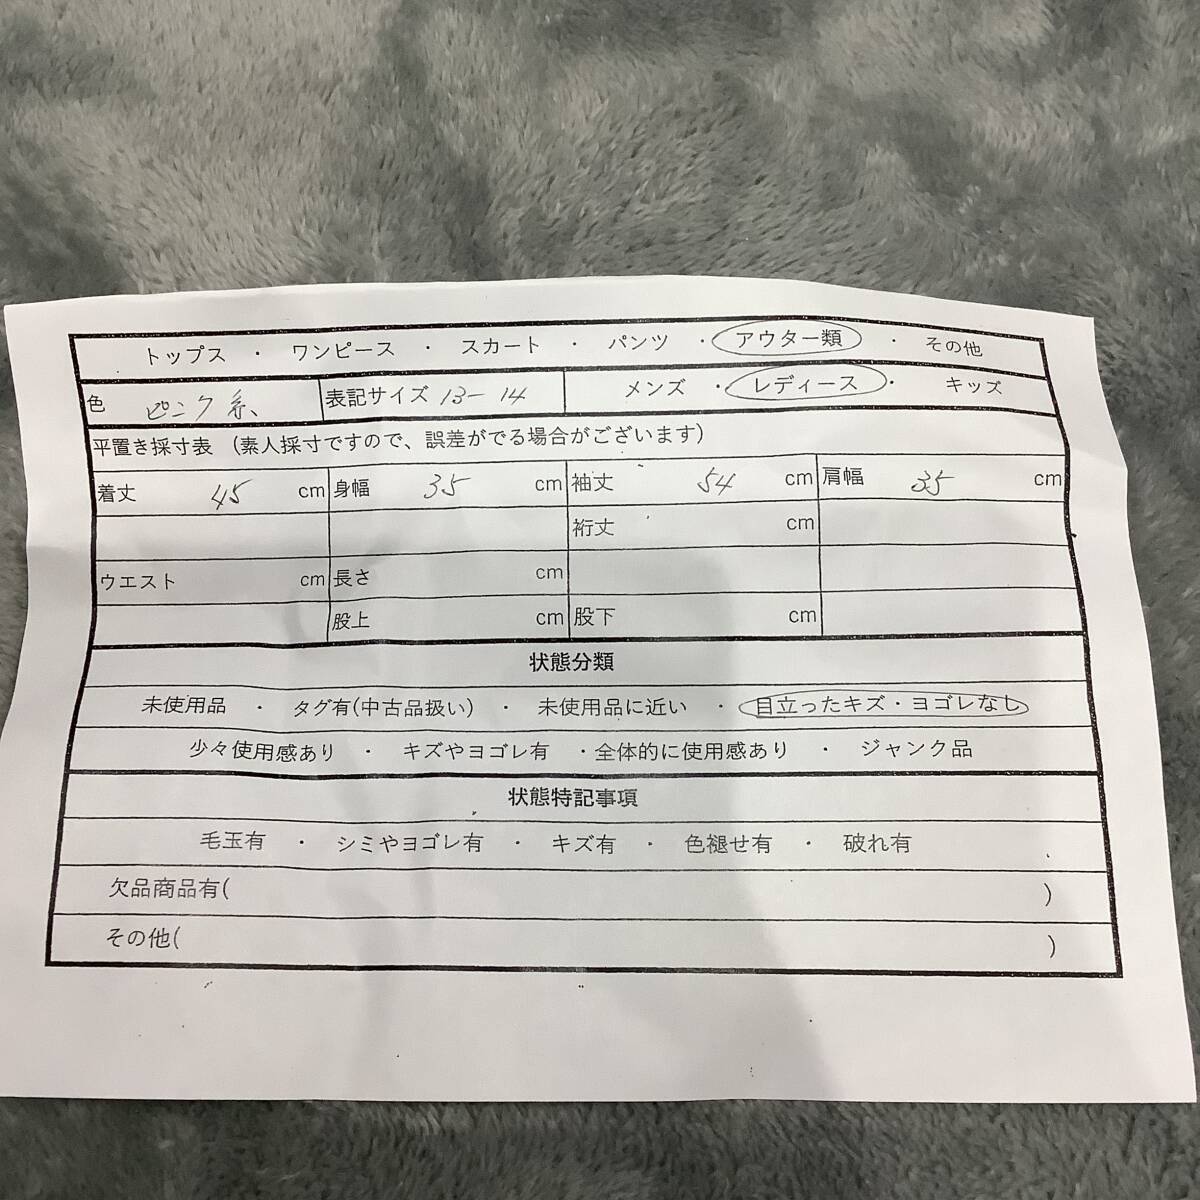 トップス ・ ワンピース ・ スカート ・ パンツ ・ アウター類 ・ その他
色 ピンク系 表記サイズ 13-14 メンズ ・ レディース ・ キッズ
平置き採寸表 (素人採寸ですので、誤差がでる場合がございます)
着丈 45 cm 身幅 35 cm 袖丈 54 cm 肩幅 35 cm
裄丈 cm
ウエスト cm 長さ cm
股上 cm 股下 cm
状態分類
未使用品 ・ タグ有(中古品扱い) ・ 未使用品に近い ・ 目立ったキズ・ヨゴレなし
少々使用感あり ・ キズやヨゴレ有 ・全体的に使用感あり ・ ジャンク品
状態特記事項
毛玉有 ・ シミやヨゴレ有 ・ キズ有 ・ 色褪せ有 ・ 破れ有
欠品商品有( )
その他( )